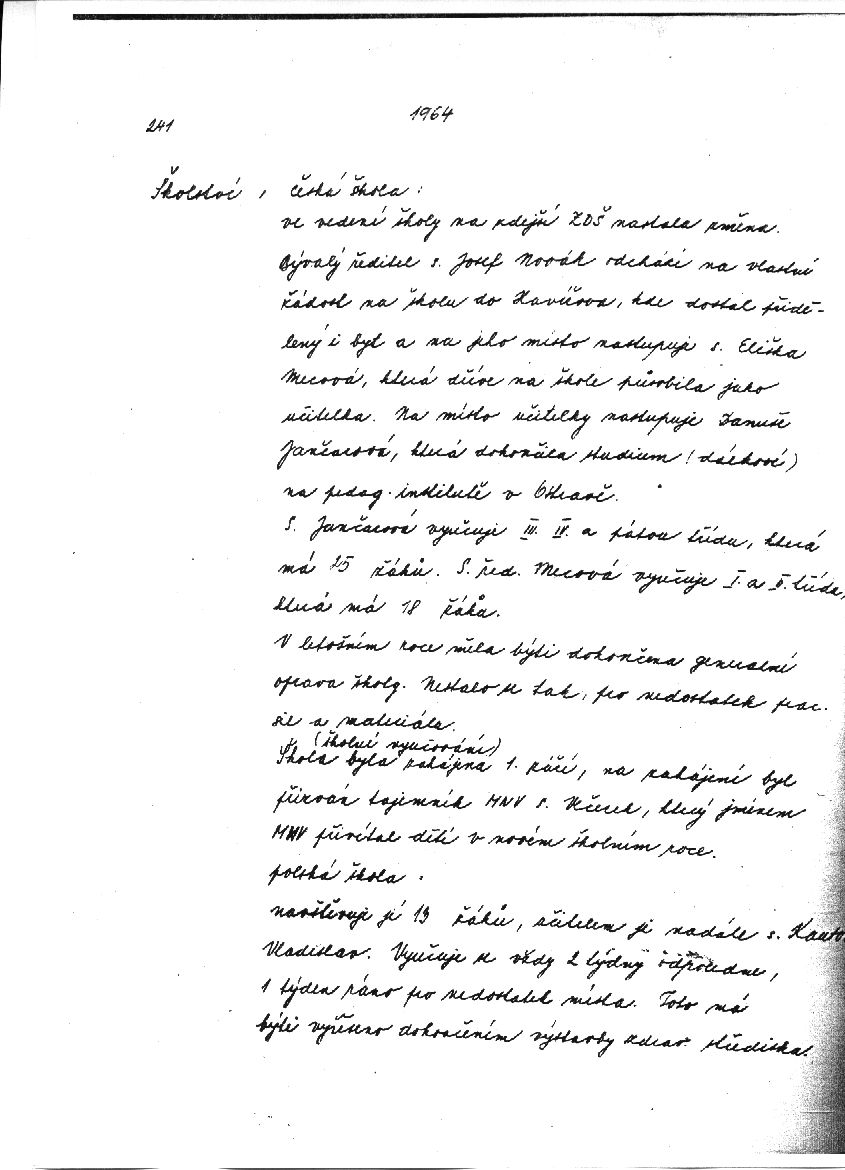 1964
241
Školství, česká škola:
ve vedení školy na zdejší ZDŠ nastala změna.
Bývalý ředitel s. Josef Novák odchází na vlastní
žádost na školu do Havířova, kde dostal přidě-
lený i byt a na jeho místo nastupuje s. Eliška
Mecová, která dříve na škole působila jako
učitelka. Na místo učitelky nastupuje Danuše
Jančarová, která dokončila studium (dálkové)
na pedag. institutě v Ostravě.
S. Jančarová vyučuje III. IV. a pátou třídu, která
má 25 žáků. S. řed. Mecová vyučuje I. a II. třídu,
která má 18 žáků.
V letošním roce měla býti dokončena generální
oprava školy. Nestalo se tak, pro nedostatek prac.
sil a materiálu.
(školní vyučování)
Škola byla zahájena 1. září, na zahájení byl
přizván tajemník MNV s. Včerek, který jménem
MNV přivítal děti v novém školním roce.
polská škola.
navštěvuje jí 13 žáků, učitelem je nadále s.
Vladislav. Vyučuje se vždy 2 týdny odpoledne,
1 týden ráno pro nedostatek místa. Toto má
býti vyřešeno dokončením výstavby zdrav. střediska.